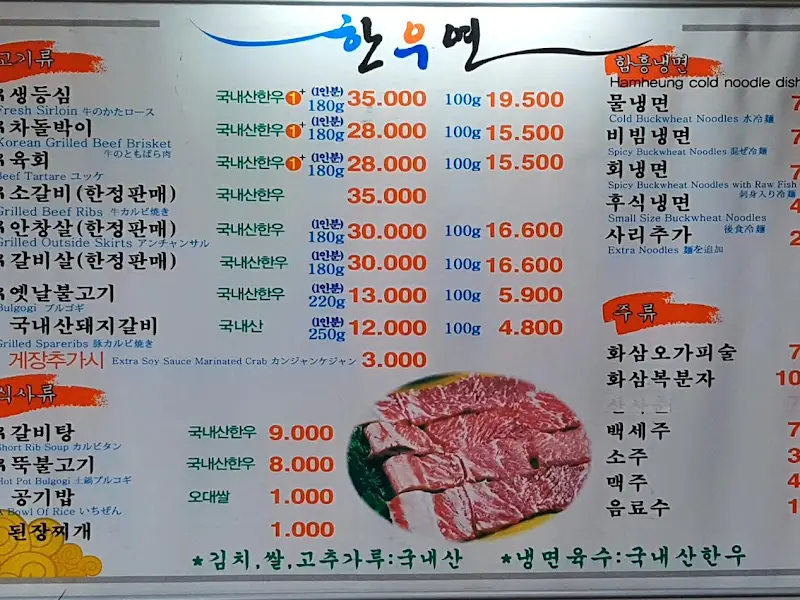 한우면
고기류
생등심 국내산한우 1+ (1인분) 180g 35.000 100g 19.500
Fresh Sirloin 牛のかたロース
차돌박이 국내산한우 1+ (1인분) 180g 28.000 100g 15.500
Korean Grilled Beef Brisket 牛のともばら肉
육회 국내산한우 1+ (1인분) 180g 28.000 100g 15.500
Beef Tartare ユッケ
소갈비(한정판매) 국내산한우 35.000
Grilled Beef Ribs 牛カルビ焼き
안창살(한정판매) 국내산한우 (1인분) 180g 30.000 100g 16.600
Grilled Outside Skirts アンチャンサル
갈비살(한정판매) 국내산한우 (1인분) 180g 30.000 100g 16.600
옛날불고기 국내산한우 (1인분) 220g 13.000 100g 5.900
Bulgogi プルゴギ
국내산돼지갈비 국내산 (1인분) 250g 12.000 100g 4.800
Grilled Spareribs 豚カルビ焼き
게장추가시 Extra Soy Sauce Marinated Crab カンジャンケジャン 3.000
식사류
갈비탕 국내산한우 9.000
Short Rib Soup カルビタン
뚝불고기 국내산한우 8.000
Hot Pot Bulgogi 土鍋プルコギ
공기밥 오대쌀 1.000
A Bowl Of Rice いちぜん
된장찌개 1.000
*김치,쌀,고추가루:국내산 *냉면육수:국내산한우
함흥냉면
Hamheung cold noodle dish
물냉면 7
Cold Buckwheat Noodles 水冷麺
비빔냉면 7
Spicy Buckwheat Noodles 混ぜ冷麺
회냉면 7
Spicy Buckwheat Noodles with Raw Fish 刺身入り冷麺
후식냉면 4
Small Size Buckwheat Noodles 後食冷麺
사리추가 2
Extra Noodles 麺を追加
주류
화삼오가피술 7
화삼복분자 10
백세주 7
소주 3
맥주 4
음료수 1